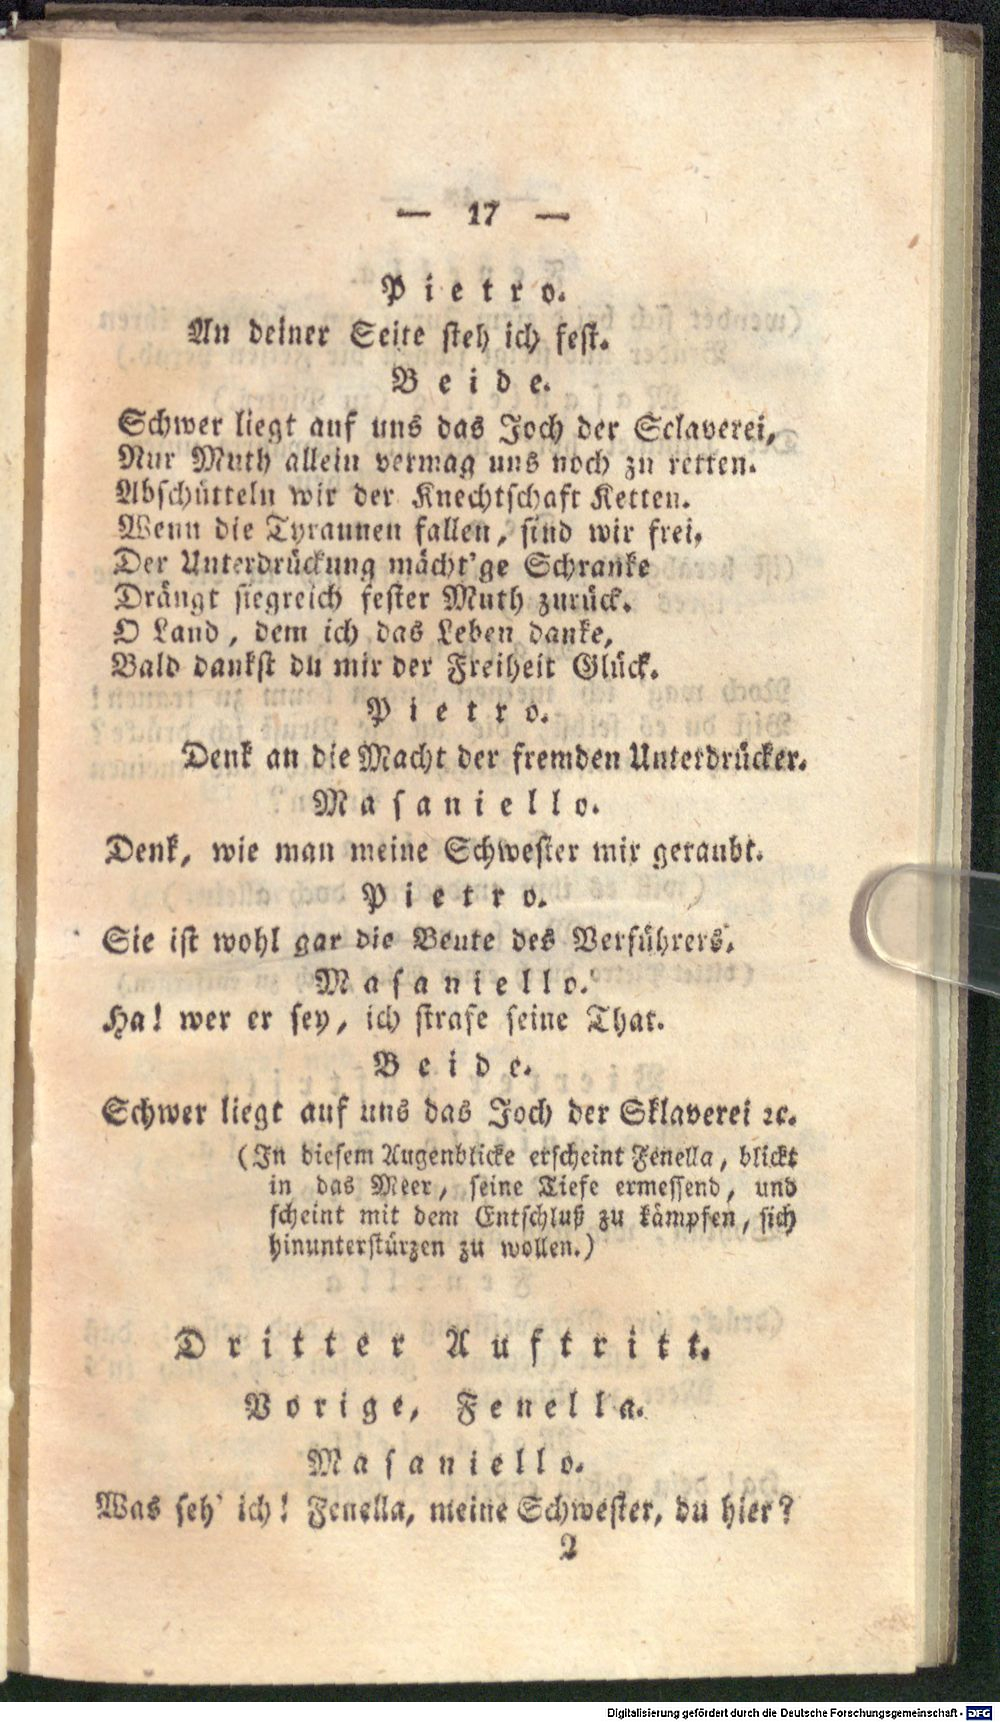 — 17 —
Pietro.
An deiner Seite steh ich fest.
Beide.
Schwer liegt auf uns das Joch der Sclaverei,
Nur Muth allein vermag uns noch zu retten.
Abschütteln wir der Knechtschaft Ketten.
Wenn die Tyrannen fallen, sind wir frei,
Der Unterdrückung mächt'ge Schranke
Drängt siegreich fester Muth zurück.
O Land, dem ich das Leben danke,
Bald dankst du mir der Freiheit Glück.
Pietro.
Denk an die Macht der fremden Unterdrücker.
Masaniello.
Denk, wie man meine Schwester mir geraubt.
Pietro.
Sie ist wohl gar die Beute des Verführers.
Masaniello.
Ha! wer er sey, ich strafe seine That.
Beide.
Schwer liegt auf uns das Joch der Sklaverei ꝛc.
(In diesem Augenblicke erscheint Fenella, blickt
in das Meer, seine Tiefe ermessend, und
scheint mit dem Entschluß zu kämpfen, sich
hinunterstürzen zu wollen.)
Dritter Auftritt.
Vorige, Fenella.
Masaniello.
Was seh' ich! Fenella, meine Schwester, du hier?
2
Digitalisierung gefördert durch die Deutsche Forschungsgemeinschaft - DFG